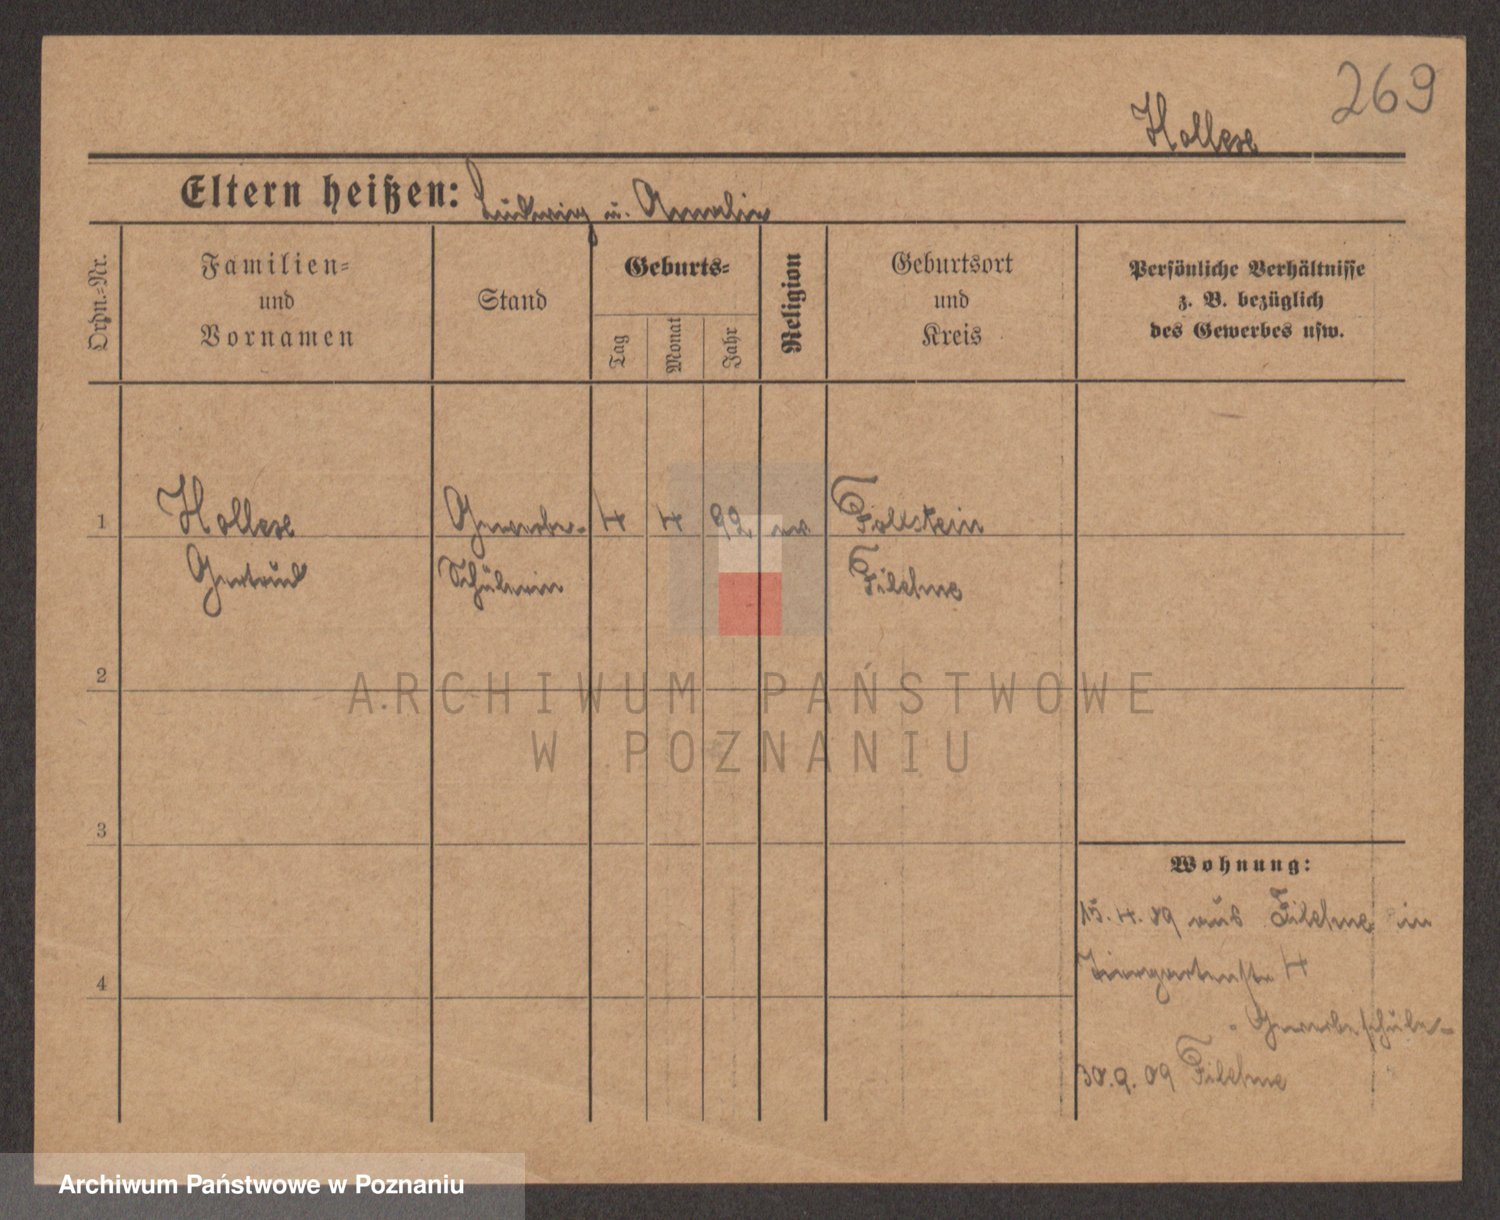 269
Hollese
Eltern heißen: Ludwig u. Amalie
Ordn.-Nr.
Familien-
und
Vornamen
Stand
Geburts-
Tag
Monat
Jahr
Religion
Geburtsort
und
Kreis
Persönliche Verhältnisse
z. B. bezüglich
des Gewerbes usw.
1 Hollese Gewerbe- 4 4 92 ev
Gertrud Schülerin Filehne
2
3
4
Wohnung:
15.4.09 aus Filehne in
Tiergartenstr 4
Gewerbeschule
30.9.09 Filehne
ARCHIWUM PAŃSTWOWE
W POZNANIU
Archiwum Państwowe w Poznaniu